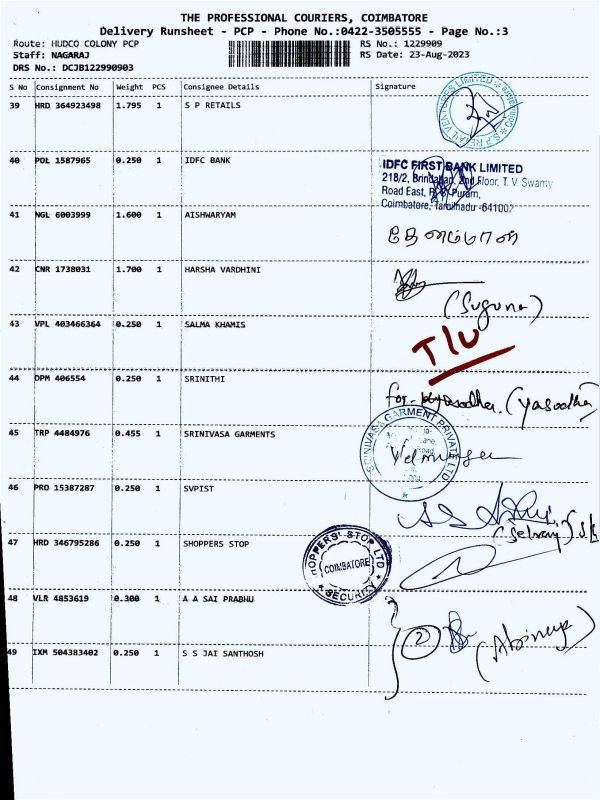 THE PROFESSIONAL COURIERS, COIMBATORE
Delivery Runsheet - PCP - Phone No.:0422-3505555 - Page No.:3
Route: HUDCO COLONY PCP
Staff: NAGARAJ
DRS No.: DCJB122990903
RS No.: 1229909
RS Date: 23-Aug-2023
S No Consignment No Weight PCS Consignee Details Signature
39 HRD 364923498 1.795 1 S P RETAILS
40 POL 1587965 0.250 1 IDFC BANK
IDFC FIRST BANK LIMITED
218/2, Brindaban, 2nd Floor, T. V. Swamy
Road East, R. S. Puram,
Coimbatore, Tamilnadu -641002
41 NGL 6003999 1.600 1 AISHWARYAM
42 CNR 1738031 1.700 1 HARSHA VARDHINI
(Suguna)
43 VPL 403466364 0.250 1 SALMA KHAMIS
T/U
44 DPM 406554 0.250 1 SRINITHI
for (Yasodha)
45 TRP 4484976 0.455 1 SRINIVASA GARMENTS
SRINIVASA GARMENT PRIVATE LTD
46 PRO 15387287 0.250 1 SVPIST
(Selvaraj)
47 HRD 346795286 0.250 1 SHOPPERS STOP
SHOPPERS' STOP LTD
COIMBATORE
SECURITY
48 VLR 4853619 0.300 1 A A SAI PRABHU
2
(Abinaya)
49 IXM 504383402 0.250 1 S S JAI SANTHOSH